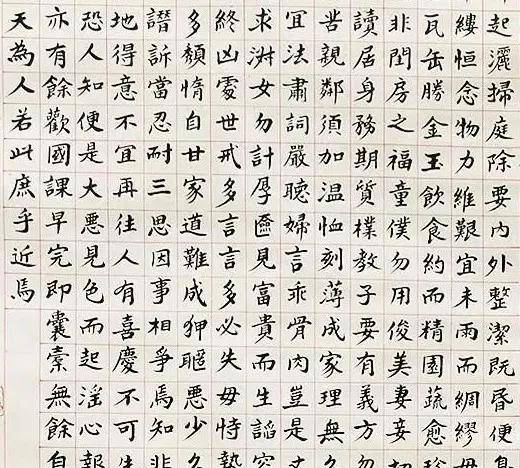 起灑掃庭除要內外整潔既昏便息
縷恒念物力維艱宜未雨而綢繆毋
瓦缶勝金玉飲食約而精園蔬愈珍
非閨房之福童僕勿用俊美妻妾切
讀居身務期質樸教子要有義方勿
苦親鄰須加温恤刻薄成家理無久
宜法肅詞嚴聽婦言乖骨肉豈是丈
求淑女勿計厚匳見富貴而生諂容
終凶處世戒多言言多必失毋恃勢
多頹惰自甘家道難成狎暱惡少久
譖訴當忍耐三思因事相爭焉知非
地得意不宜再往人有喜慶不可生
恐人知便是大惡見色而起淫心報
亦有餘歡國課早完即囊橐無餘自
天為人若此庶乎近焉